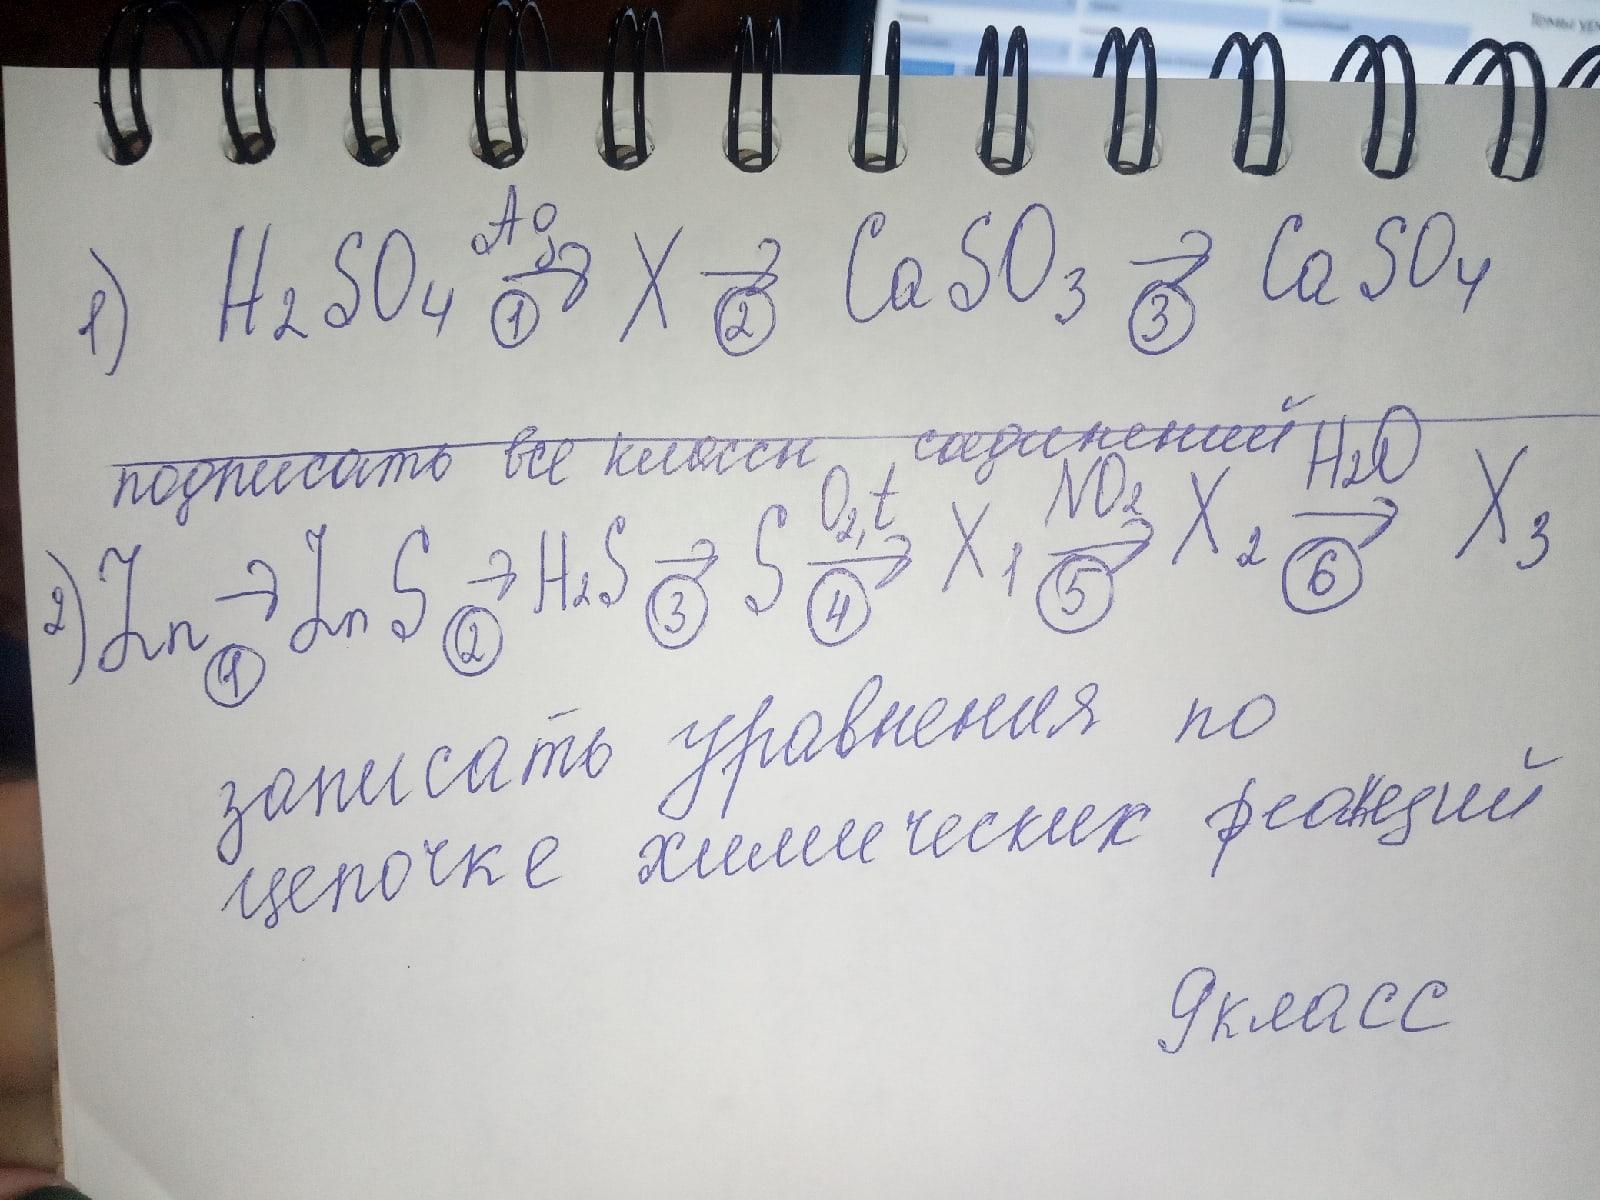 1) H₂SO₄ Ag→ ① X → ② CaSO₃ → ③ CaSO₄
подписать все классы соединений
2) Zn → ① ZnS → ② H₂S → ③ S O₂,t → ④ X₁ NO₂ → ⑤ X₂ H₂O → ⑥ X₃
записать уравнения по
цепочке химических реакций
9 класс